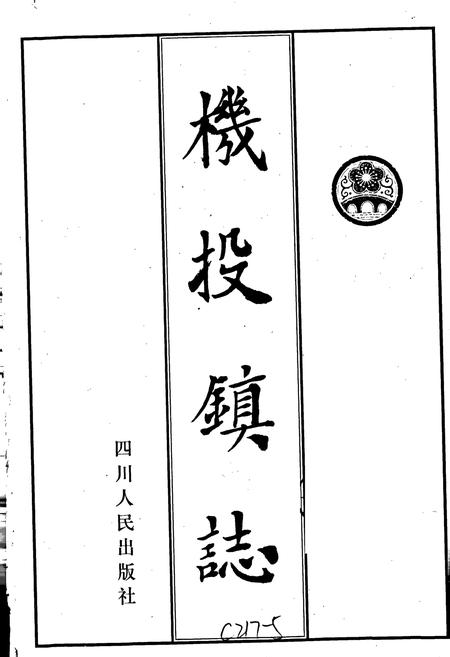 機投鎮誌
四川人民出版社
C217-5